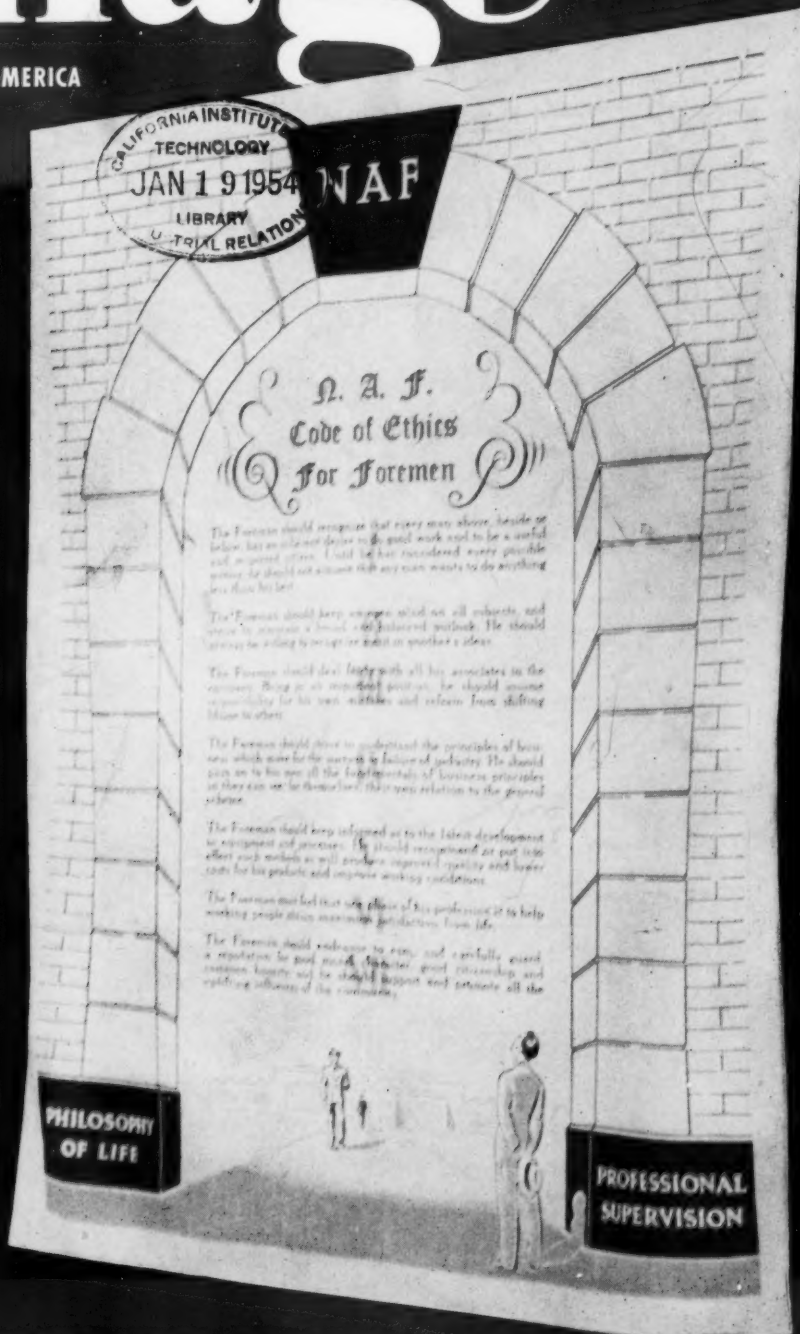 MERICA
CALIFORNIA INSTITUTE
TECHNOLOGY
JAN 19 1954
LIBRARY
TRIAL RELATION
NAF
N. A. F.
Code of Ethics
For Foremen
The Foreman should recognize that every man above, beside or
below, has an desire to do good work and to be a useful
and until he has considered every possible
he should not assume that any man wants to do anything
less than his best.
The Foreman should keep an open mind on all subjects, and
to maintain a broad and balanced outlook. He should
be willing to recognize merit in another's ideas.
The Foreman should deal fairly with all his associates in the
company. Being in an important position, he should assume
responsibility for his own mistakes and refrain from shifting
blame to others.
The Foreman should strive to understand the principles of busi-
ness which make for the success or failure of industry. He should
pass on to his men all the fundamentals of business principles
so they can see for themselves their own relation to the general
scheme.
The Foreman should keep informed as to the latest development
in equipment and processes. He should recommend or put into
effect such methods as will produce improved quality and lower
costs for his products and improve working conditions.
The Foreman must feel that one phase of his profession is to help
working people attain maximum satisfaction from life.
The Foreman should endeavor to earn, and carefully guard,
a reputation for good moral character, good citizenship and
common honesty and he should support and promote all the
uplifting influences of the community.
PHILOSOPHY
OF LIFE
PROFESSIONAL
SUPERVISION